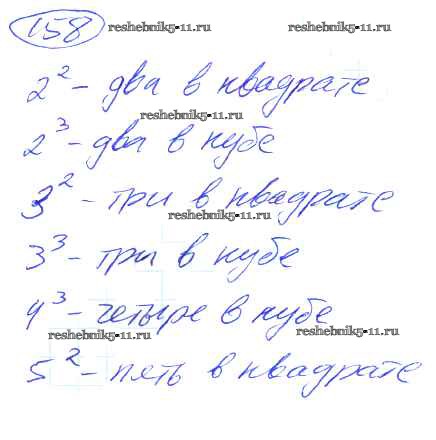 158
reshebnik5-11.ru reshebnik5-11.ru
2² - два в квадрате
reshebnik5-11.ru
2³ - два в кубе
3² - три в квадрате
reshebnik5-11.ru
3³ - три в кубе
4³ - четыре в кубе
reshebnik5-11.ru reshebnik5-11.ru
5² - пять в квадрате